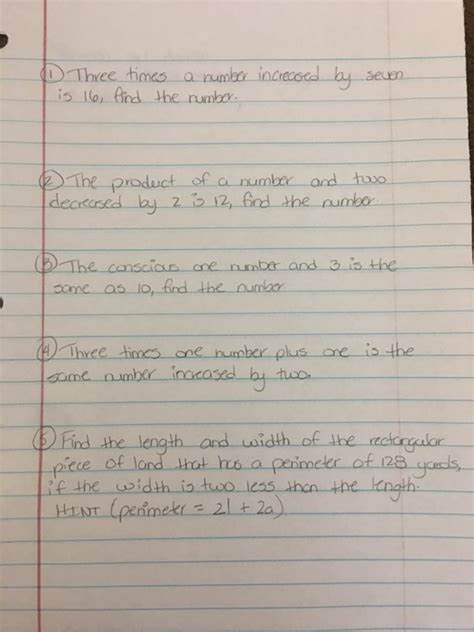 ① Three times a number increased by seven
is 16, find the number.
② The product of a number and two
decreased by 2 is 12, find the number.
③ The conscious one number and 3 is the
same as 10, find the number
④ Three times one number plus one is the
same number increased by two.
⑤ Find the length and width of the rectangular
piece of land that has a perimeter of 128 yards,
if the width is two less than the length.
HINT (perimeter = 2l + 2a)